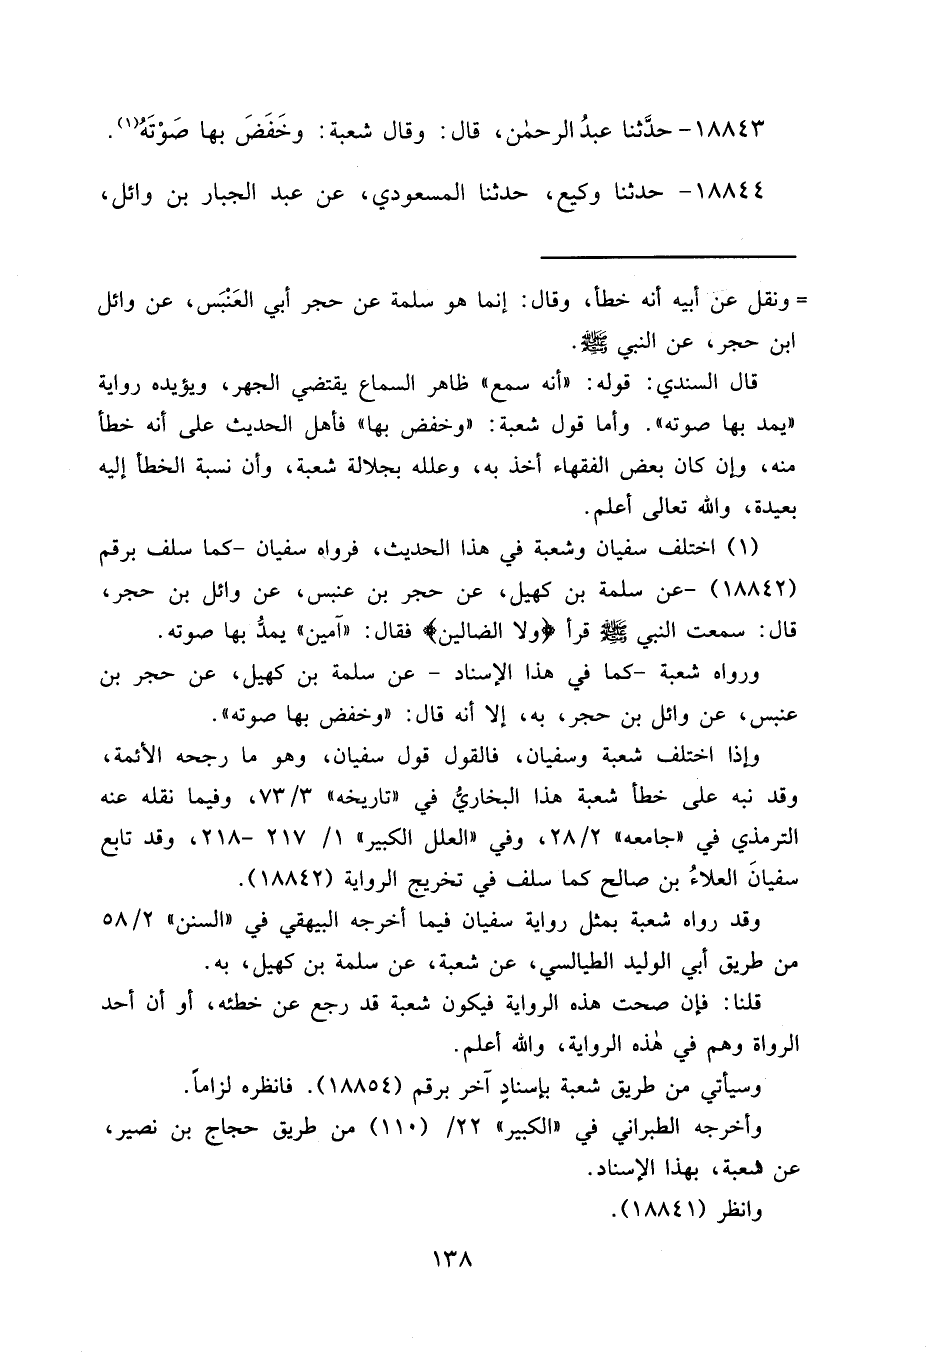 ١٨٨٤٣- حدَّثنا عبدُ الرحمٰن، قال: وقال شعبة: وخَفَضَ بها صَوْتَهُ(١).
١٨٨٤٤- حدثنا وكيع، حدثنا المسعودي، عن عبد الجبار بن وائل،
= ونقل عن أبيه أنه خطأ، وقال: إنما هو سلمة عن حجر أبي العَنْبَس، عن وائل
ابن حجر، عن النبي ﷺ.
قال السندي: قوله: «أنه سمع» ظاهر السماع يقتضي الجهر، ويؤيده رواية
«يمد بها صوته». وأما قول شعبة: «وخفض بها» فأهل الحديث على أنه خطأ
منه، وإن كان بعض الفقهاء أخذ به، وعلله بجلالة شعبة، وأن نسبة الخطأ إليه
بعيدة، والله تعالى أعلم.
(١) اختلف سفيان وشعبة في هذا الحديث، فرواه سفيان -كما سلف برقم
(١٨٨٤٢) -عن سلمة بن كهيل، عن حجر بن عنبس، عن وائل بن حجر،
قال: سمعت النبي ﷺ قرأ ﴿ولا الضالين﴾ فقال: «آمين» يمدُّ بها صوته.
ورواه شعبة -كما في هذا الإسناد - عن سلمة بن كهيل، عن حجر بن
عنبس، عن وائل بن حجر، به، إلا أنه قال: «وخفض بها صوته».
وإذا اختلف شعبة وسفيان، فالقول قول سفيان، وهو ما رجحه الأئمة،
وقد نبه على خطأ شعبة هذا البخاريُّ في «تاريخه» ٧٣/٣، وفيما نقله عنه
الترمذي في «جامعه» ٢٨/٢، وفي «العلل الكبير» ١/ ٢١٧ -٢١٨، وقد تابع
سفيانَ العلاءُ بن صالح كما سلف في تخريج الرواية (١٨٨٤٢).
وقد رواه شعبة بمثل رواية سفيان فيما أخرجه البيهقي في «السنن» ٥٨/٢
من طريق أبي الوليد الطيالسي، عن شعبة، عن سلمة بن كهيل، به.
قلنا: فإن صحت هذه الرواية فيكون شعبة قد رجع عن خطئه، أو أن أحد
الرواة وهم في هٰذه الرواية، والله أعلم.
وسيأتي من طريق شعبة بإسنادٍ آخر برقم (١٨٨٥٤). فانظره لزاماً.
وأخرجه الطبراني في «الكبير» ٢٢/ (١١٠) من طريق حجاج بن نصير،
عن شعبة، بهذا الإسناد.
وانظر (١٨٨٤١).
١٣٨